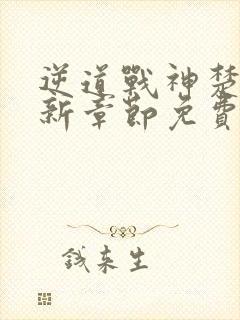 逆道戰神楚
新章節免費
錢來生